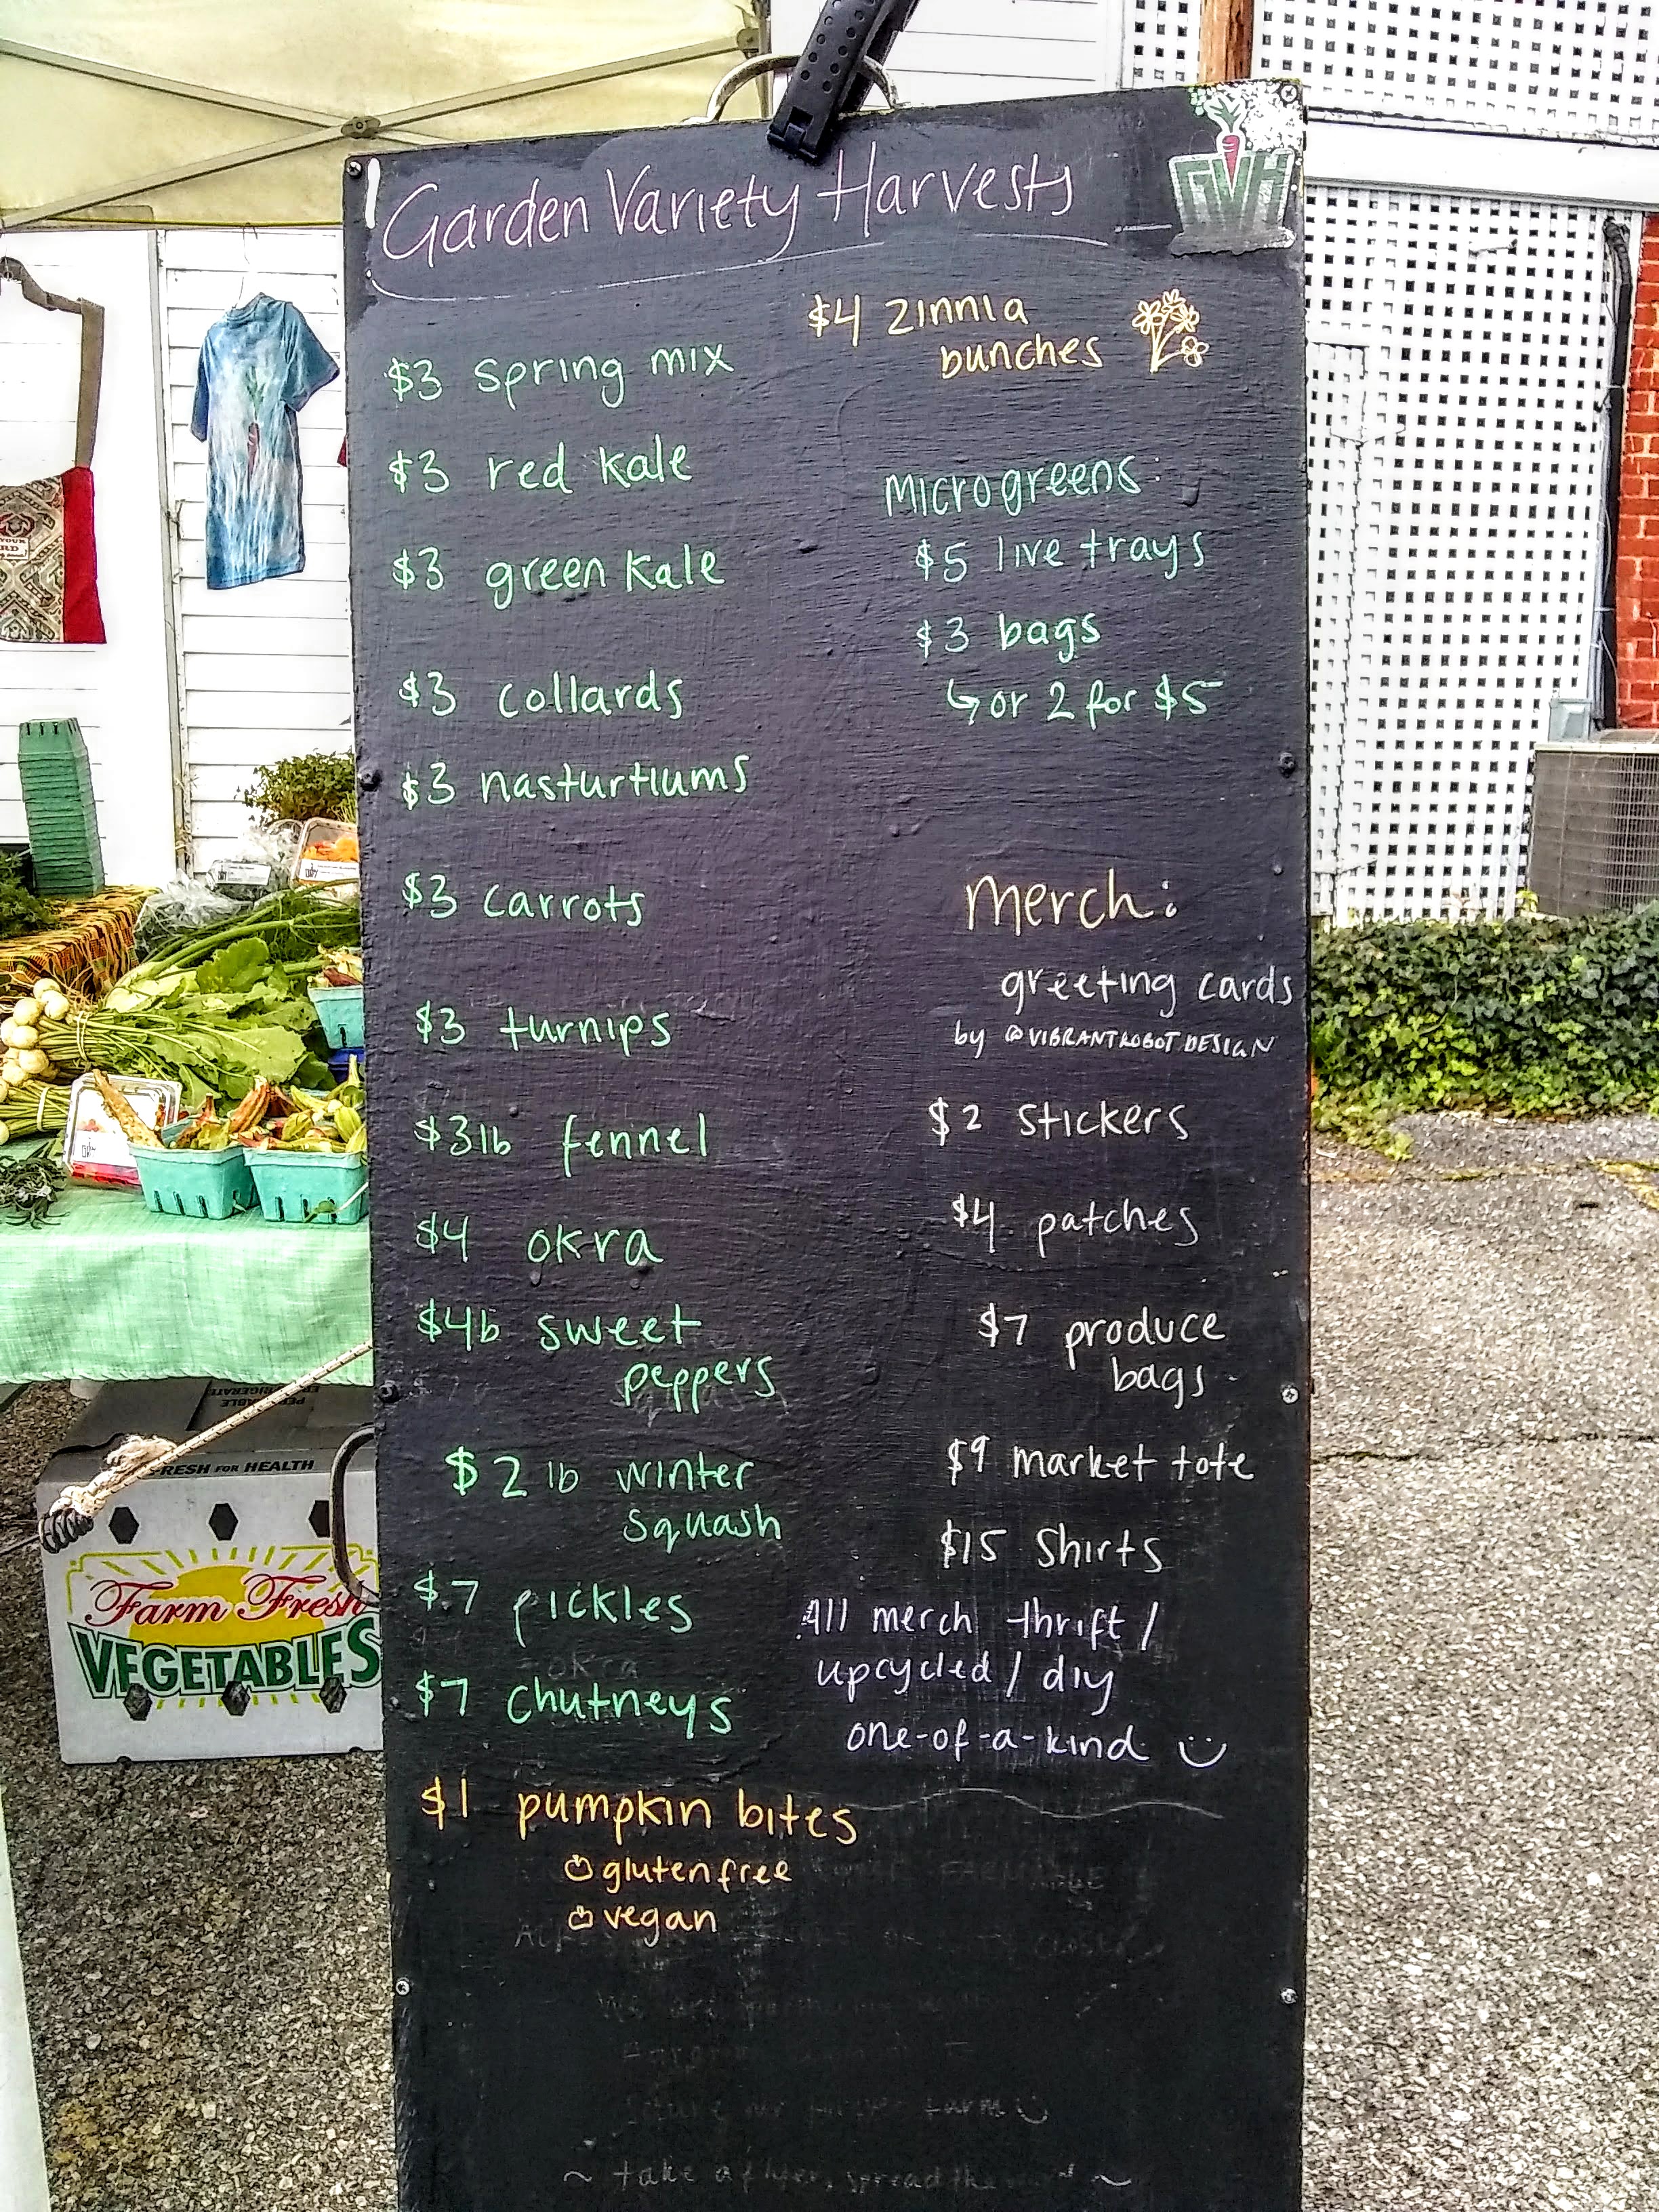 Garden Variety Harvests
GVH
$3 spring mix
$3 red kale
$3 green kale
$3 collards
$3 nasturtiums
$3 carrots
$3 turnips
$3 lb fennel
$4 okra
$4 lb sweet
peppers
$2 lb winter
squash
$7 pickles
okra
$7 chutneys
$1 pumpkin bites
gluten free
vegan
$4 zinnia
bunches
Microgreens:
$5 live trays
$3 bags
↳ or 2 for $5
merch:
greeting cards
by @VIBRANTROBOTDESIGN
$2 stickers
$4 patches
$7 produce
bags
$9 market tote
$15 shirts
All merch thrift /
upcycled / diy
one-of-a-kind
farm
~ take a flyer, spread the ~
FRESH FOR HEALTH
Farm Fresh
VEGETABLES